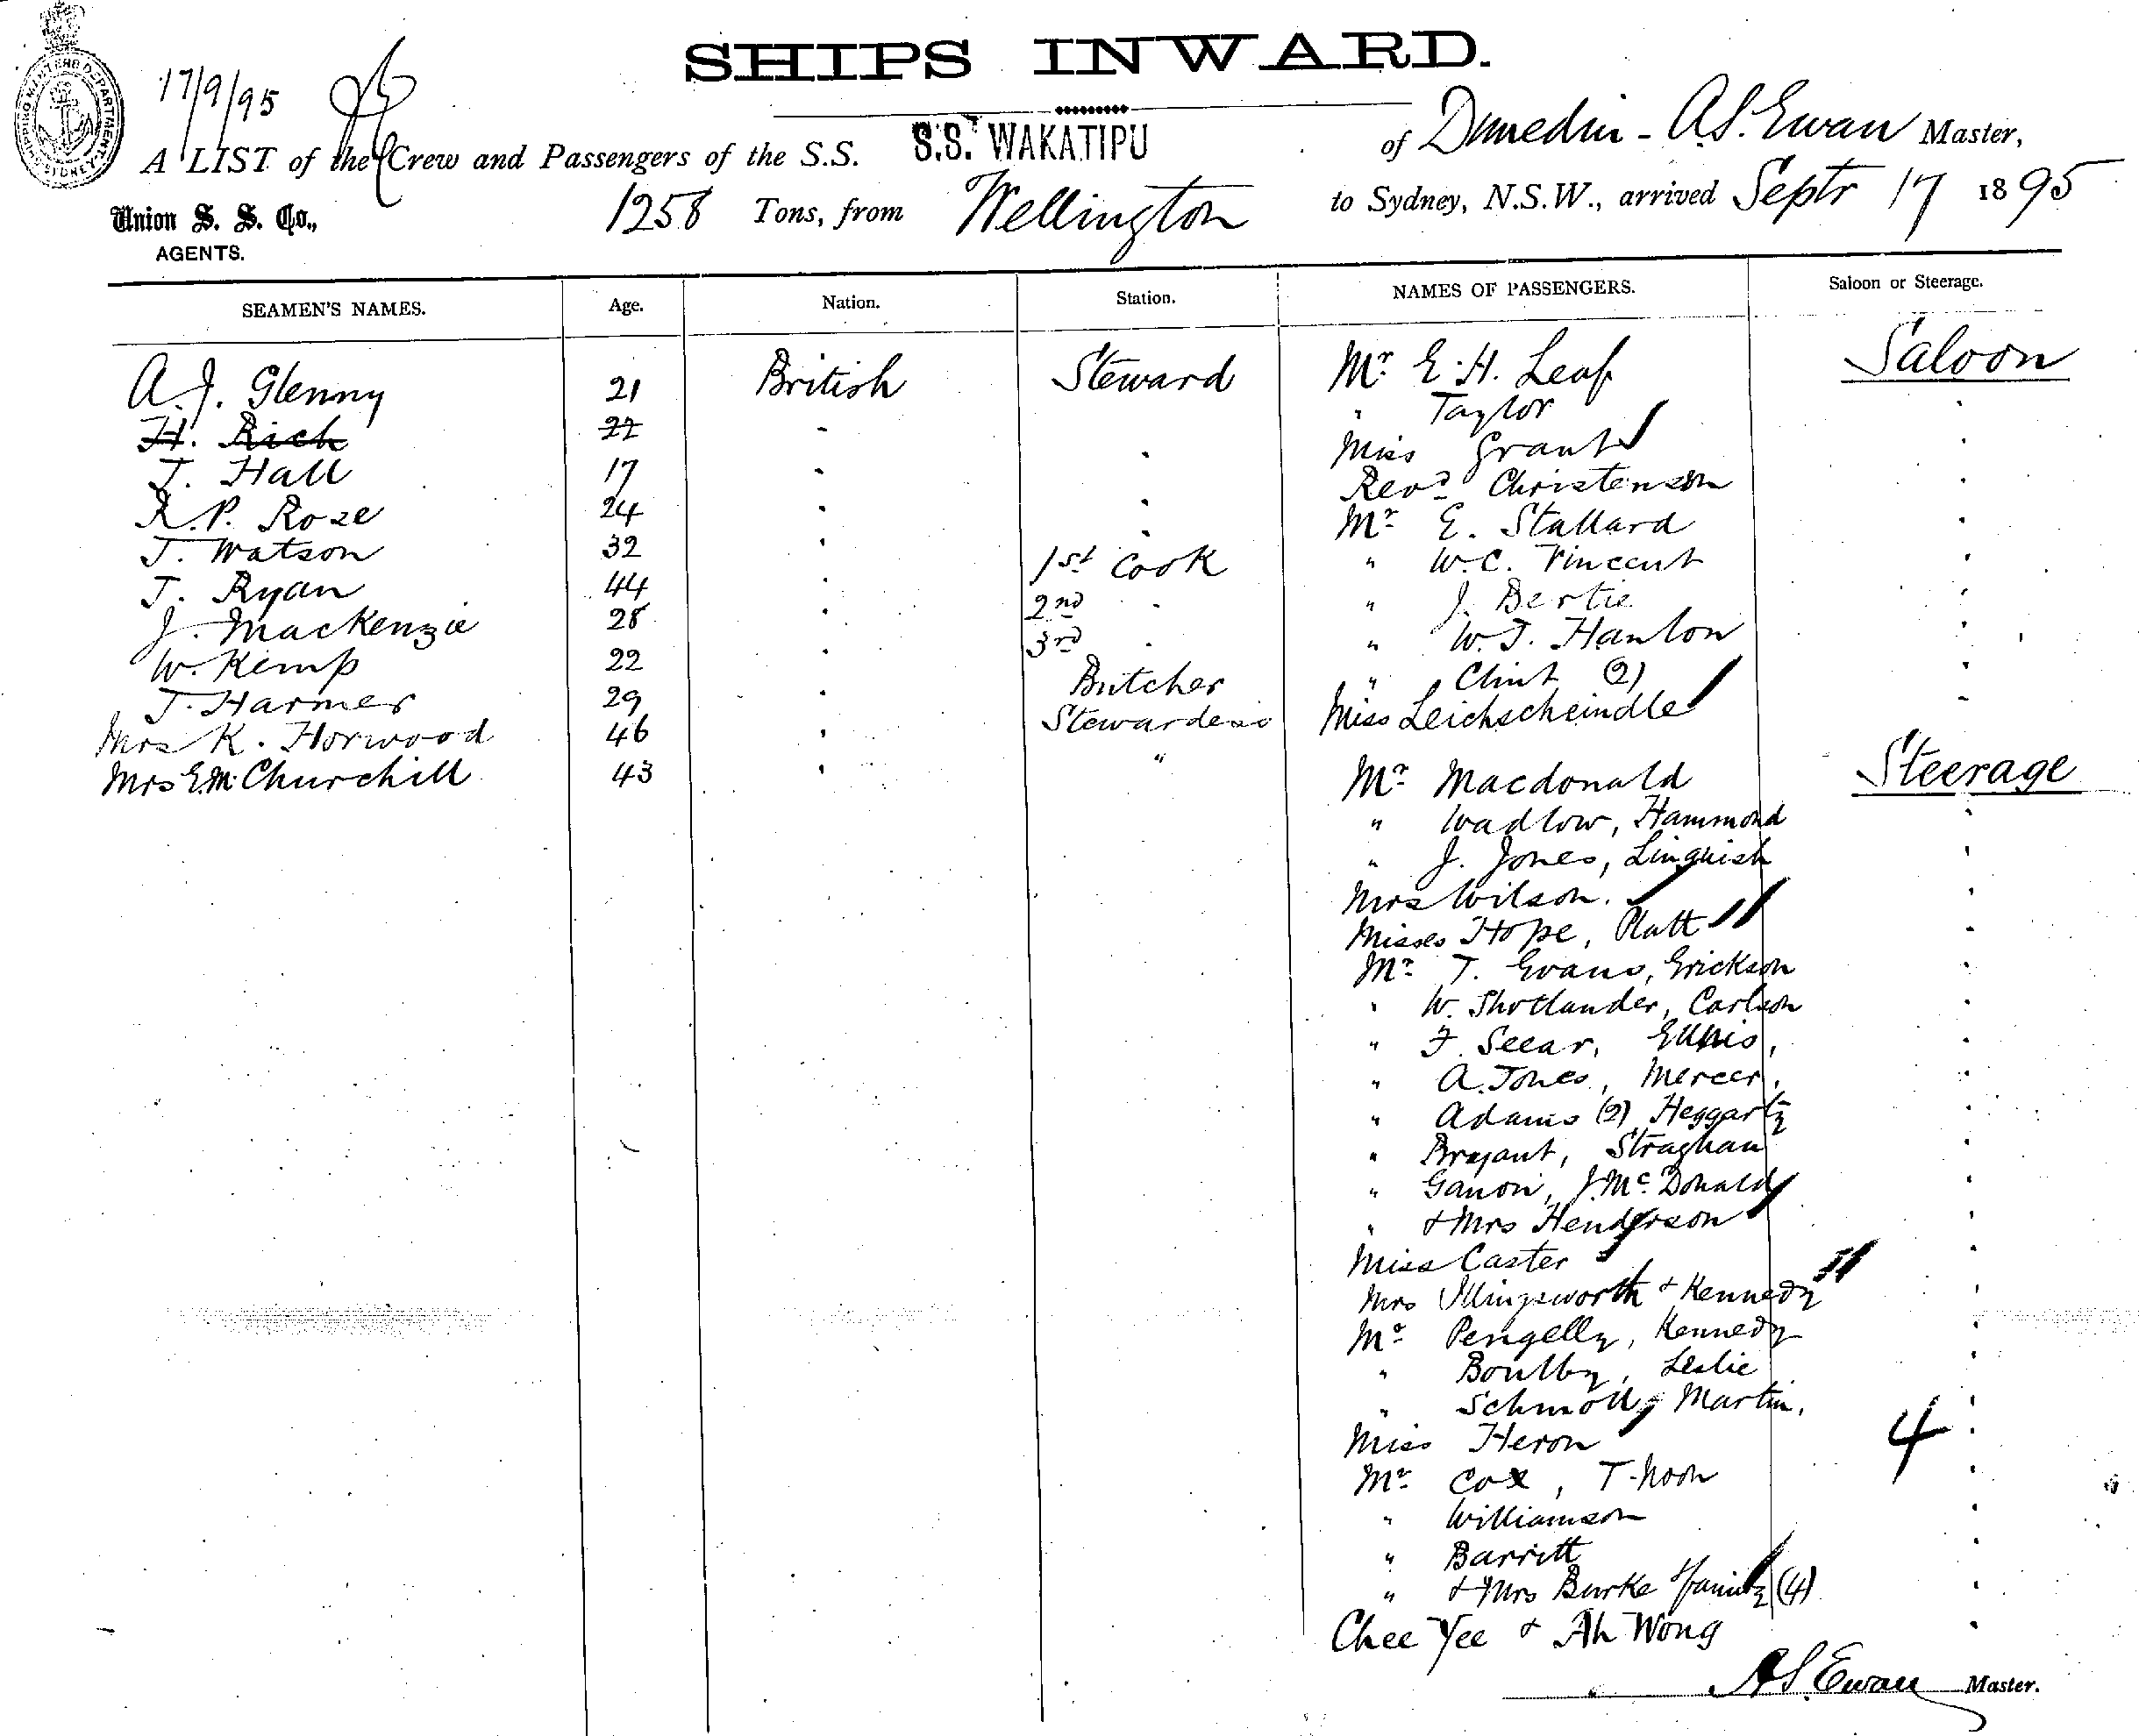 SHIPS INWARD.
SHIPPING MASTERS DEPARTMENT SYDNEY
17/9/95
A LIST of the Crew and Passengers of the S.S. S.S. WAKATIPU of Dunedin - A.S. Ewan Master,
Union S. S. Co., 1258 Tons, from Wellington to Sydney, N.S.W., arrived Septr 17 1895
AGENTS.
SEAMEN'S NAMES. Age. Nation. Station. NAMES OF PASSENGERS. Saloon or Steerage.
A.J. Glenny 21 British Steward Mr E.H. Leaf Saloon
H. Rich 22 " " Taylor "
T. Hall 17 " " Miss Grant "
R.P. Rose 24 " " Revd Christenson "
J. Watson 32 " " Mr E. Stallard "
T. Ryan 44 " 1st Cook " W.C. Vincent "
J. MacKenzie 28 " 2nd " " J. Bertie "
W. Kemp 22 " 3rd " " W.J. Hanlon "
T. Harmer 29 " Butcher " Clint (2) "
Mrs K. Horwood 46 " Stewardess Miss Leichscheindle "
Mrs E.M. Churchill 43 " " Mr Macdonald Steerage
" Wadlow, Hammond "
" J. Jones, Linquish "
Mrs Wilson. "
Misses Hope, Platt "
Mr T. Evans, Erickson "
" W. Shotlander, Carlson "
" F. Seear, "
" A. Jones, Mercer, "
" Adams (2) Heggarty "
" Bryant, Straghan "
" Ganon, J. McDonald "
" & Mrs Henderson "
Miss Caster "
Mrs Illingsworth & Kennedy "
Mr Pengelly, Kennedy "
" Boulby, Leslie "
" Schmoll, Martin, "
Miss Heron 4 "
Mr Cox, T. Noon "
" Williamson "
" Barritt "
" & Mrs Burke & family (4) "
Chee Yee & Ah Wong "
A.S. Ewan Master.